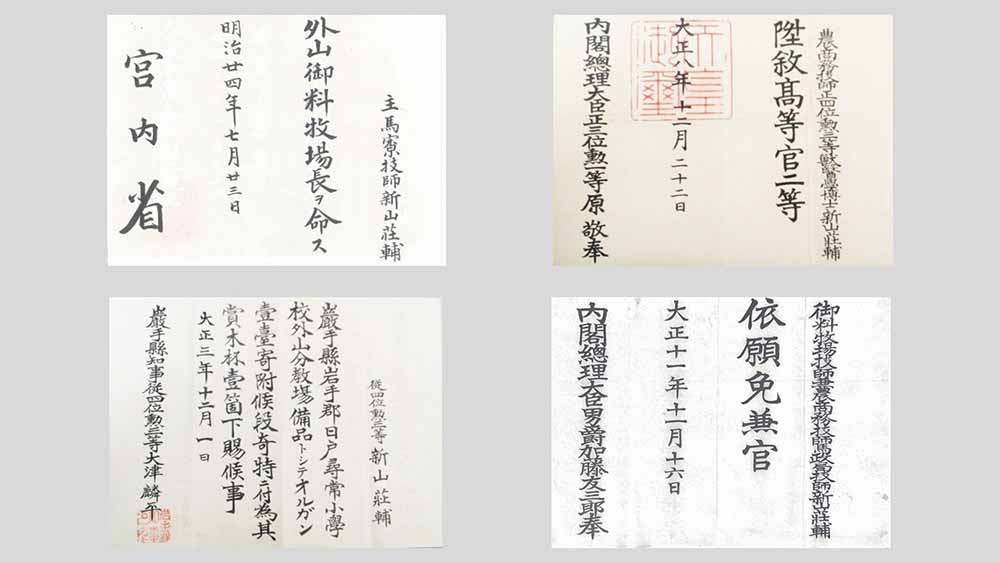 主馬寮技師新山莊輔
外山御料牧場長ヲ命ス
明治廿四年七月廿三日
宮内省
農商務技師正四位勲三等獸醫學博士新山莊輔
陞敘高等官二等
大正八年十二月二十二日
内閣總理大臣正三位勲一等原敬奉
從四位勲三等新山莊輔
巖手縣岩手郡日戸尋常小學
校外山分教場備品トシテオルガン
壹臺寄附候段奇特ニ付為其
賞木杯壹箇下賜候事
大正三年十二月一日
巖手縣知事從四位勲三等大津麟平
御料牧場技師兼農商務技師馬政官技師新山莊輔
依願免兼官
大正十一年十一月十六日
内閣總理大臣男爵加藤友三郎奉